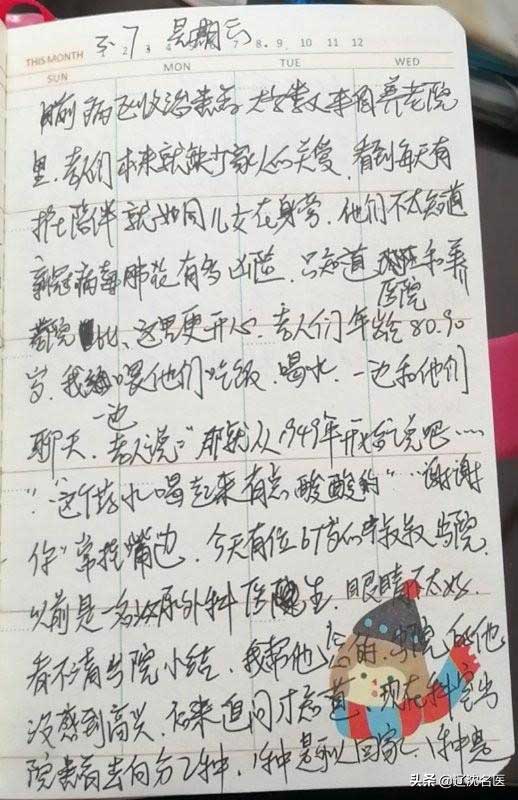 3.7 星期六
THIS MONTH 1 2 3 4 5 6 7 8 9 10 11 12
SUN MON TUE WED
目前病区收治患者大多数又来自养老院
里,老人们本来就缺少家人的关爱,看到每天有
护士陪伴就如同儿女在身旁,他们不太知道
新冠病毒肺炎有多凶险,只知道 和养
医院
老院 比,这里更开心,老人们年龄80.90
岁,我 喂他们吃饭,喝水,一边和他们
一边
聊天,老人说:"那就从1949年开始说吧……
""这个药水喝起来有点酸酸的"…谢谢
你"常挂嘴边,今天有位67岁的 叔叔出院,
以前是一名泌尿外科医生,眼睛不太好,
看不清出院小结,我帮他 ,出院后他
没感到高兴,后来追问才知道,现在科室出
院患者去向分2种,1种是可以回家,1种是
头条 @辽沈名医